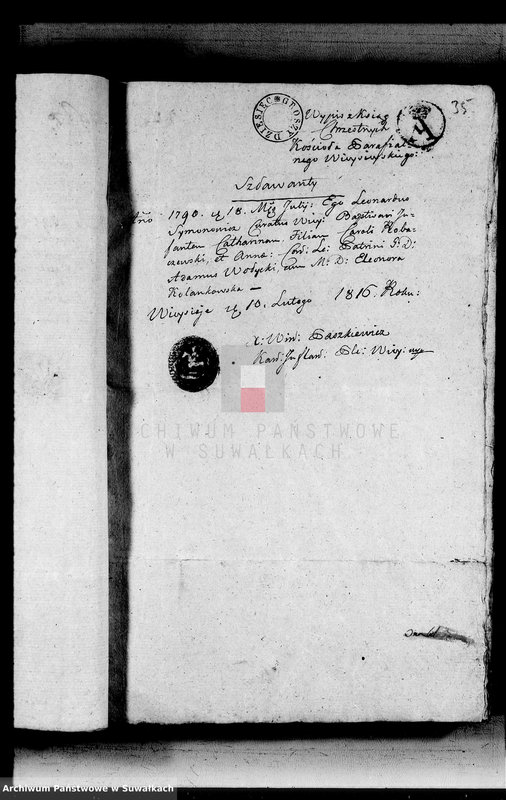 35
DZIESIĘĆ GROSZY
Wypis z Ksiąg
Chrzestnych
Kościoła Parafial
nego Wiwysieyskiego:
Szławanty
Año 1790. d 18. Mẽs Julij: Ego Leonardus
Symonowicz Curatus Wiwy: Baptisavi In=
fantem Catharinam, Filiam Caroli Koba=
czewski, et Annæ: Con: Le: Patrini P: D:
Adamus Wołycki, cum M: D: Eleonora
Kolankowska —
Wiwysieje d 10. Lutego 1816. Roku:
X: Win: Paszkiewicz
Kan: Inflan: Ple: Wiwy:
ARCHIWUM PAŃSTWOWE
W SUWAŁKACH
Archiwum Państwowe w Suwałkach